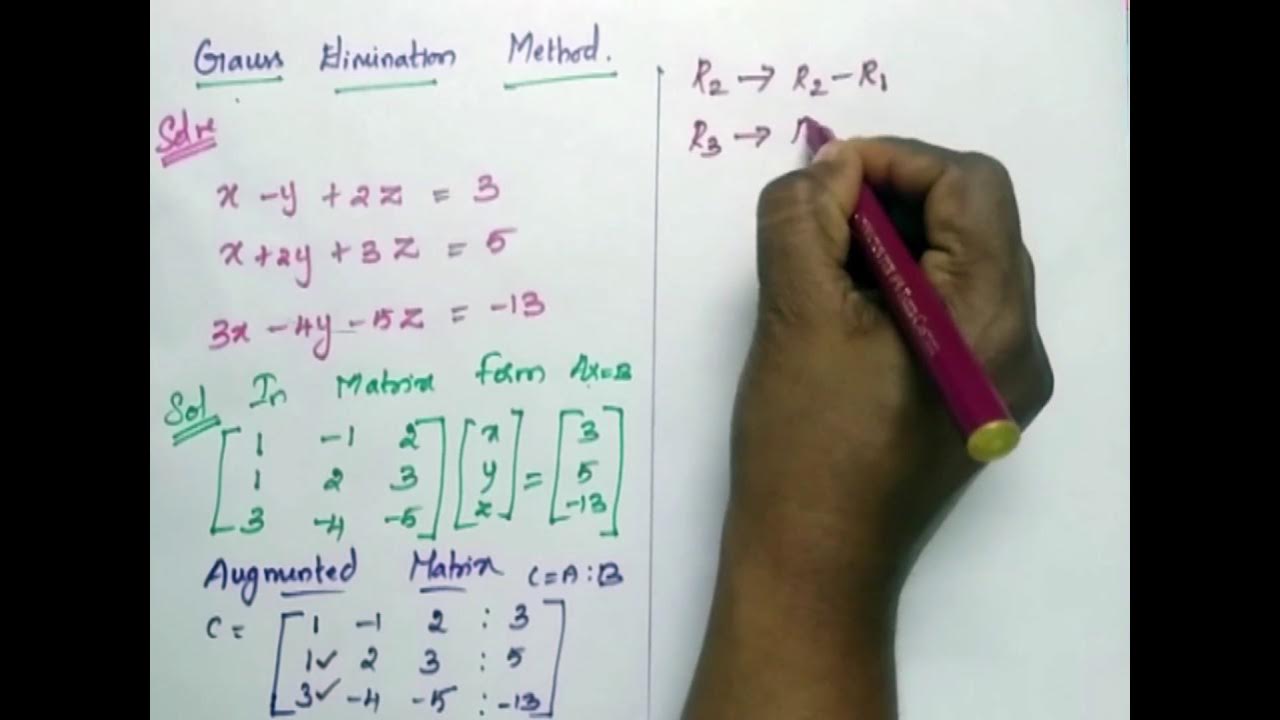 Gauss Elimination Method.
Solve
x - y + 2z = 3
x + 2y + 3z = 5
3x - 4y - 5z = -13
Sol In Matrix form Ax=B
[1 -1 2] [x] = [3]
[1 2 3] [y] [5]
[3 -4 -5] [z] [-13]
Augmented Matrix C=A:B
C = [1 -1 2 : 3]
[1✓ 2 3 : 5]
[3✓ -4 -5 : -13]
R₂ → R₂ - R₁
R₃ →